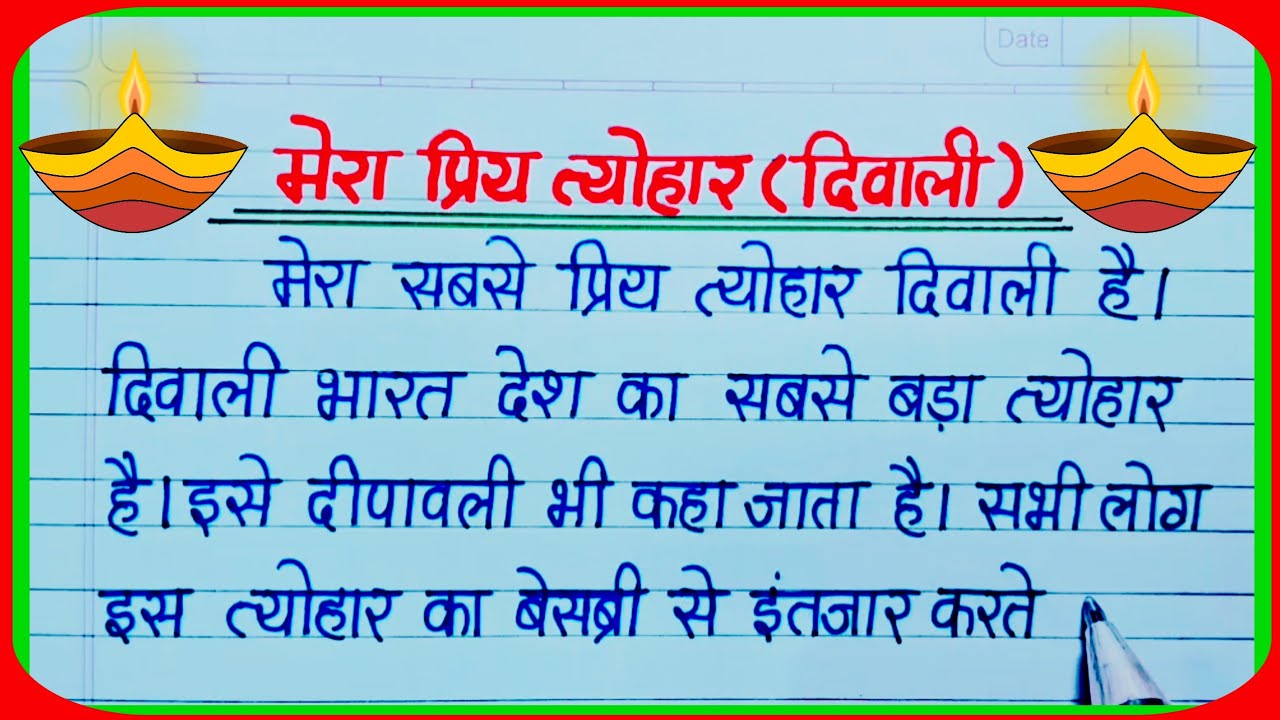 Date
मेरा प्रिय त्योहार (दिवाली)
मेरा सबसे प्रिय त्योहार दिवाली है।
दिवाली भारत देश का सबसे बड़ा त्योहार
है। इसे दीपावली भी कहा जाता है। सभी लोग
इस त्योहार का बेसब्री से इंतजार करते